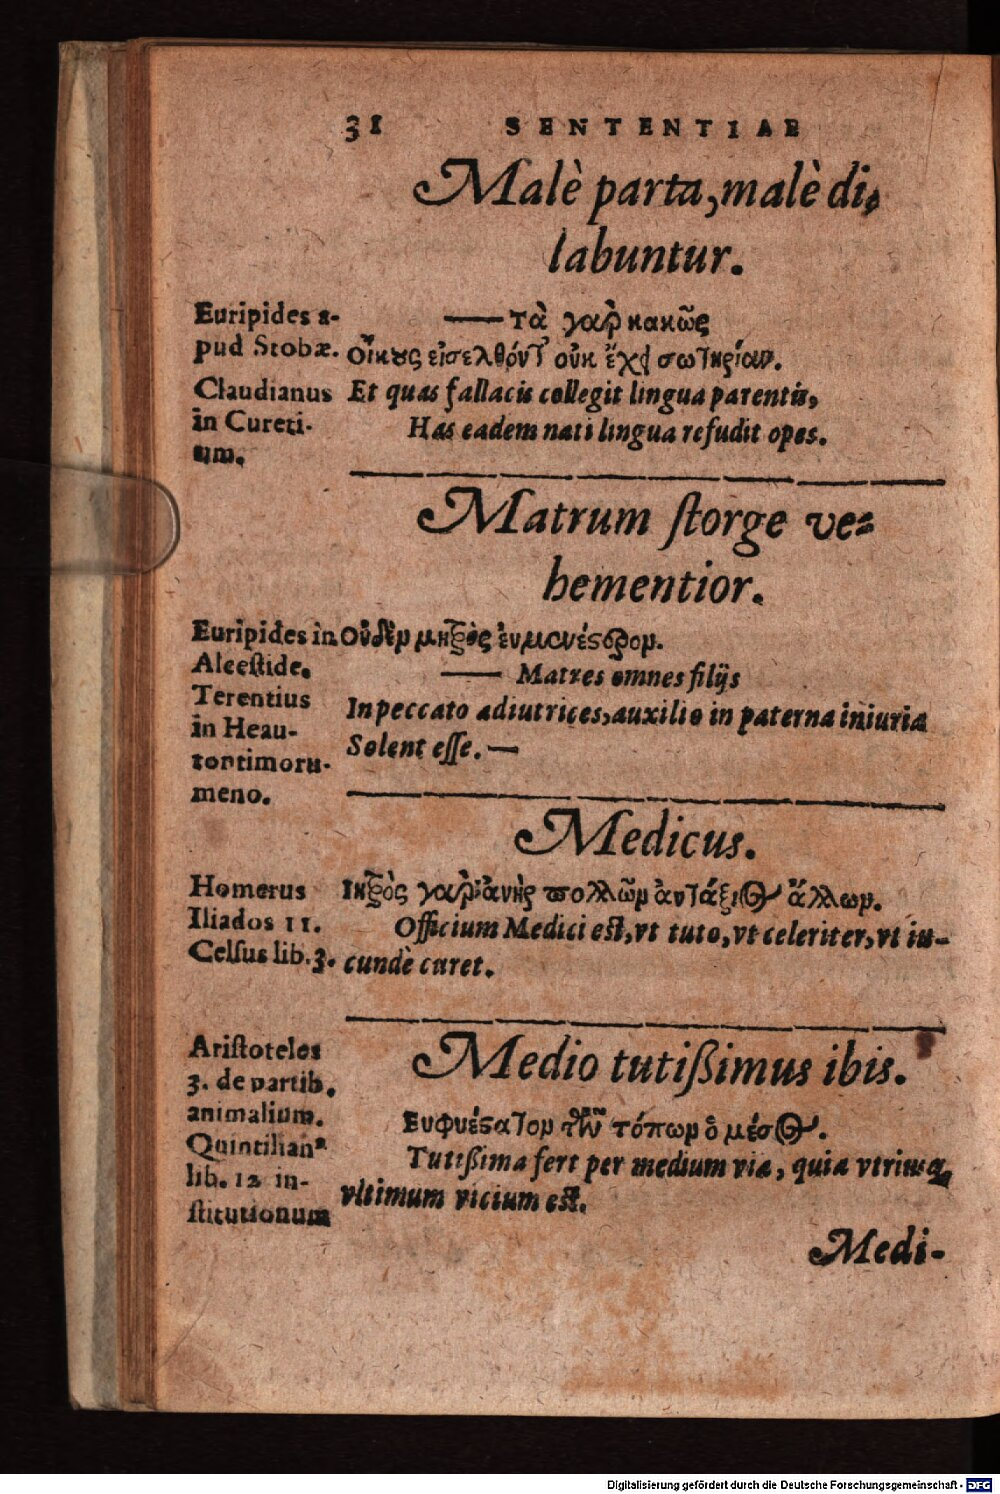 31 SENTENTIAE
Malè parta, malè di-
labuntur.
Euripides a-
pud Stobæ.
Claudianus
in Cureti-
um.
— τὰ γαρ κακῶς
Οἴκους εἰσελθόντ' οὐκ ἔχει σωτηρίαν.
Et quas fallacis collegit lingua parentis,
Has eadem nati lingua refudit opes.
Matrum storge ve-
hementior.
Euripides in
Alcestide.
Terentius
in Heau-
tontimoru-
meno.
Οὐδὲν μητρὸς ἐυμενέστερον.
— Matres omnes filijs
In peccato adiutrices, auxilio in paterna iniuria
Solent esse. —
Medicus.
Homerus
Iliados 11.
Celsus lib. 3.
Ιητρὸς γαρ ἀνὴρ πολλῶν ἀντάξιος ἄλλων.
Officium Medici est, vt tuto, vt celeriter, vt iu-
cundè curet.
Medio tutißimus ibis.
Aristoteles
3. de partib.
animalium.
Quintilianꝰ
lib. 12 in-
stitutionum
Ευφυέστατον τῶν τόπων ὁ μέσος.
Tutißima fert per medium via, quia vtriusq;
vltimum vicium est.
Medi-
Digitalisierung gefördert durch die Deutsche Forschungsgemeinschaft - DFG